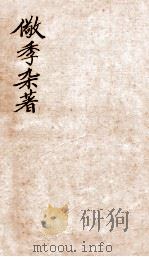 儆季杂著
研狗
mtoou.info